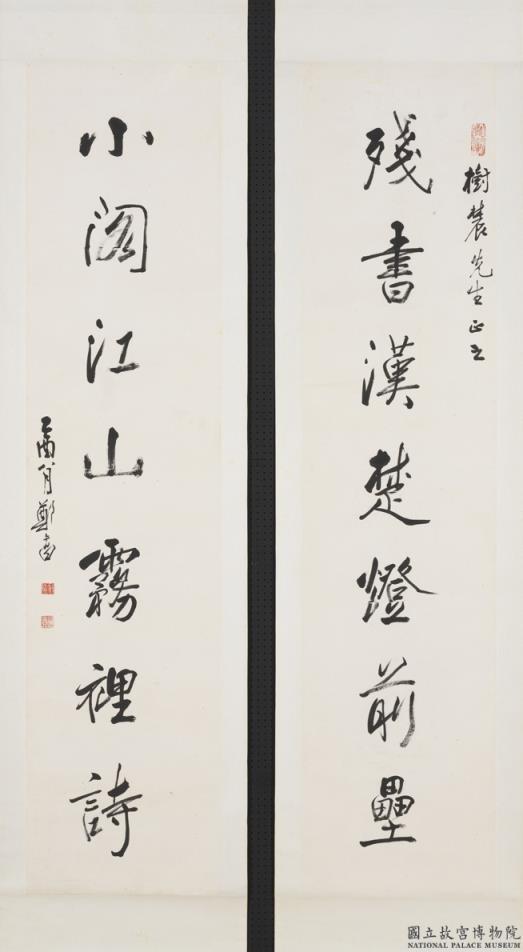 樹農先生正之
殘書漢楚燈前壘
小閣江山霧裡詩
乙酉八月鄭
國立故宮博物院
NATIONAL PALACE MUSEUM